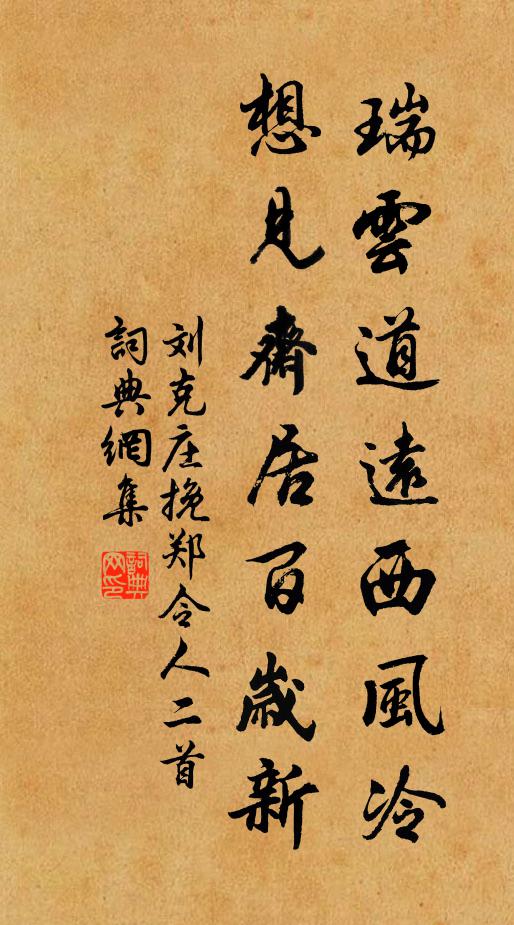 瑞雲道遠西風冷
想見齋居百歲新
刘克庄挽郑令人二首
詞典網集
詞典网印